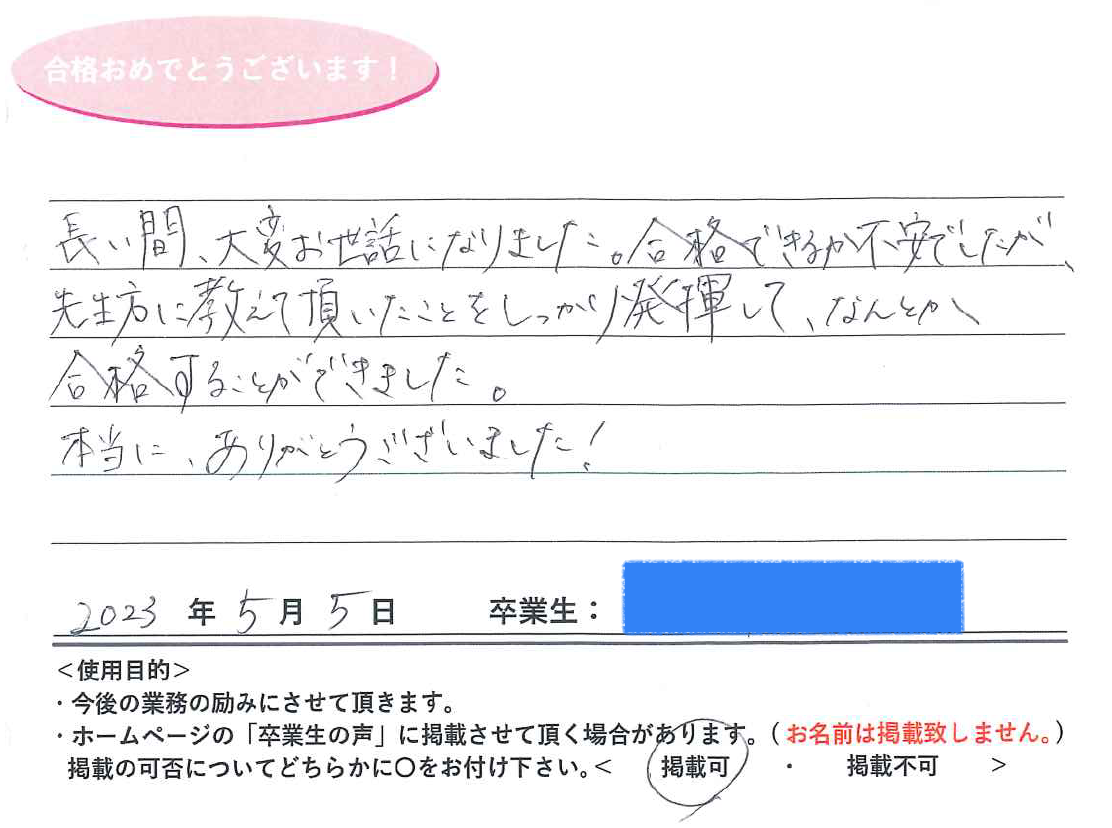 合格おめでとうございます！
長い間、大変お世話になりました。合格できるか不安でしたが、
先生方に教えて頂いたことをしっかり発揮して、なんとか
合格することができました。
本当に、ありがとうございました！
2023 年 5 月 5 日 卒業生：
＜使用目的＞
・今後の業務の励みにさせて頂きます。
・ホームページの「卒業生の声」に掲載させて頂く場合があります。（お名前は掲載致しません。）
掲載の可否についてどちらかに〇をお付け下さい。＜ 掲載可 ・ 掲載不可 ＞